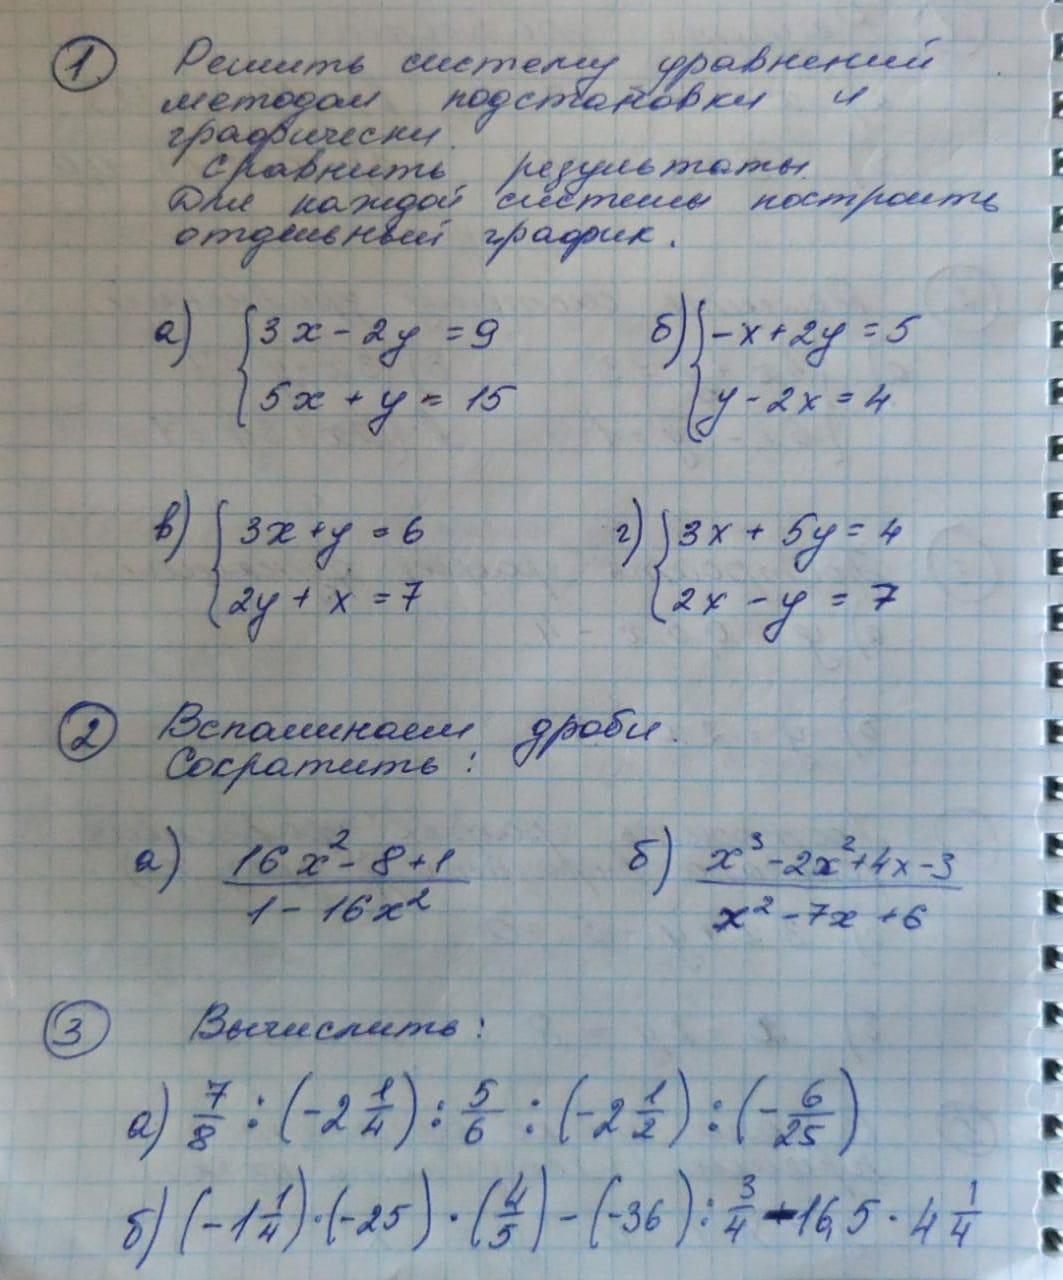 1 Решить систему уравнений
методом подстановки и
графически.
Сравнить результаты.
Для каждой системы построить
отдельный график.
а) { 3x - 2y = 9 б) { -x + 2y = 5
5x + y = 15 y - 2x = 4
в) { 3x + y = 6 г) { 3x + 5y = 4
2y + x = 7 2x - y = 7
2 Вспоминаем дроби.
Сократить:
а) (16x² - 8 + 1)/(1 - 16x²) б) (x³ - 2x² + 4x - 3)/(x² - 7x + 6)
3 Вычислить:
а) 7/8 : (-2 1/4) : 5/6 : (-2 1/2) : (-6/25)
б) (-1 1/4) · (-25) · (4/5) - (-36) : 3/4 - 16,5 · 4 1/4